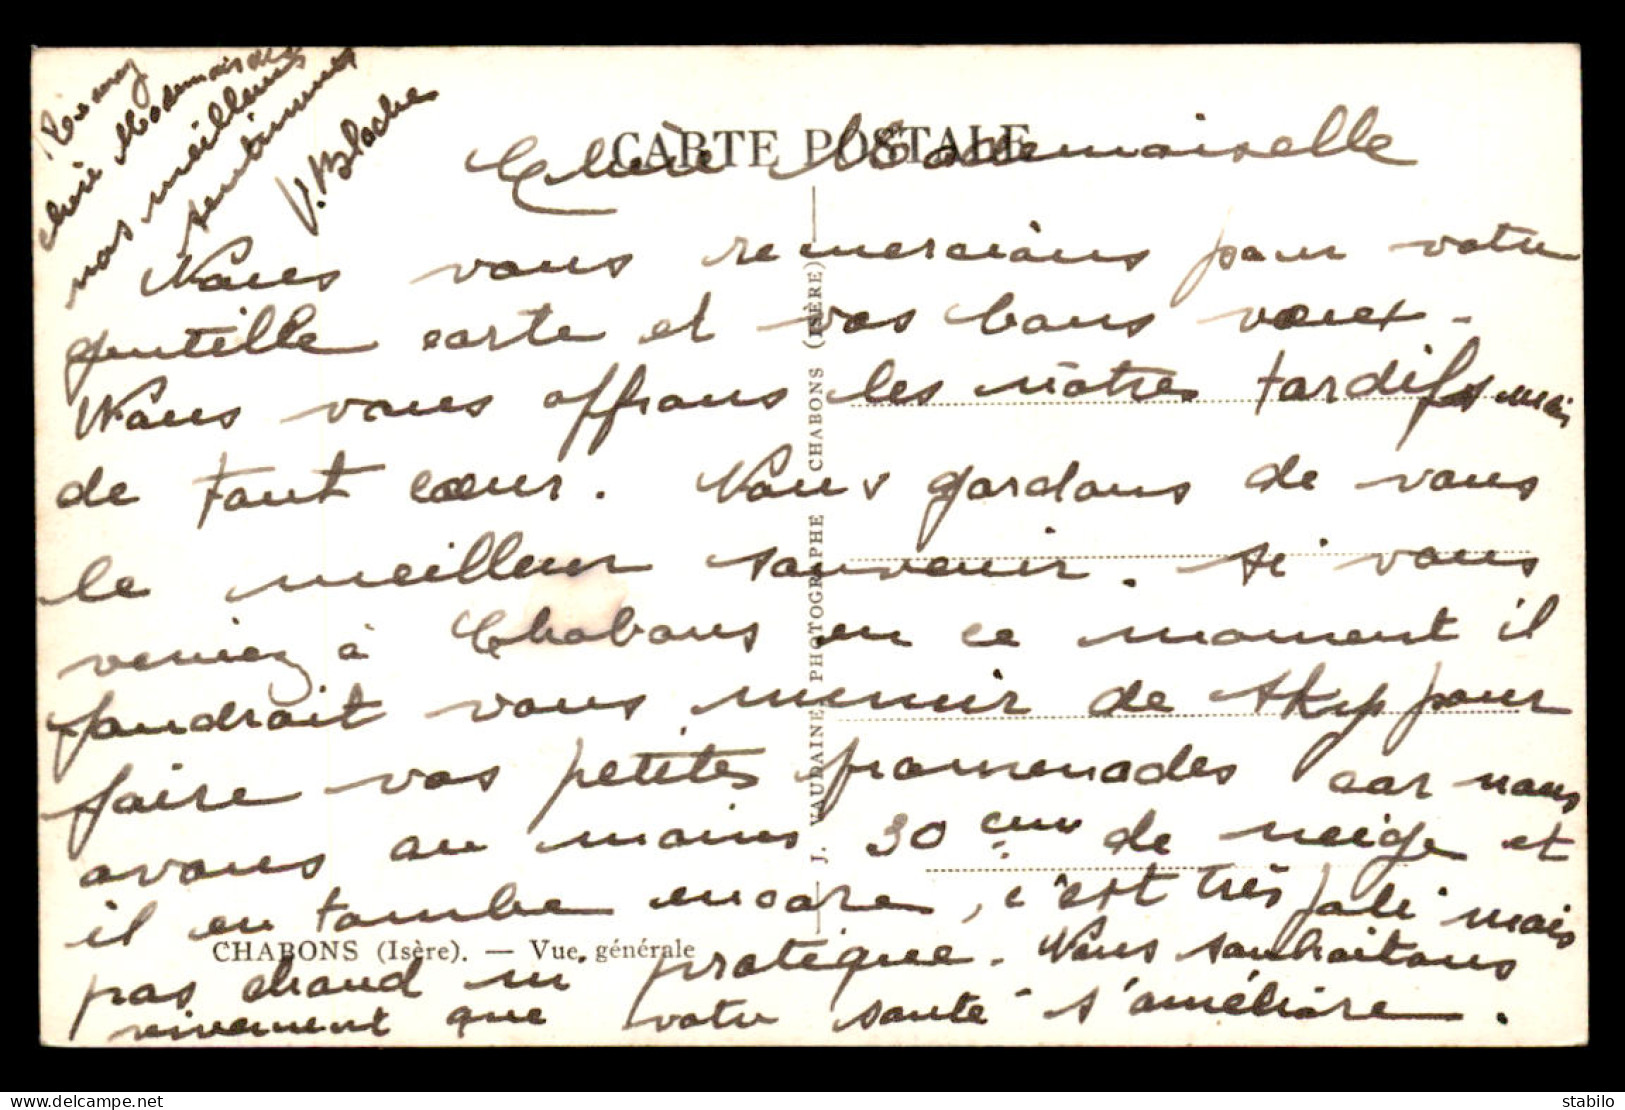 CARTE POSTALE
Chère Mademoiselle
Nous vous remercions pour votre
gentille carte et vos bons voeux.
Nous vous offrons les nôtres tardifs mais
de tout coeur. Nous gardons de vous
le meilleur souvenir. Si vous
veniez à Chabons en ce moment il
faudrait vous munir de skys pour
faire vos petites promenades car nous
avons au moins 30 cms de neige et
il en tombe encore, c'est très joli mais
pas chaud ni pratique. Nous souhaitons
vivement que votre santé s'améliore.
chère Mademoiselle
nos meilleurs
sentiments
V. Blache
CHABONS (Isère). — Vue générale
J. VAUDAINE, PHOTOGRAPHE CHABONS (ISÈRE)
www.delcampe.net
stabilo